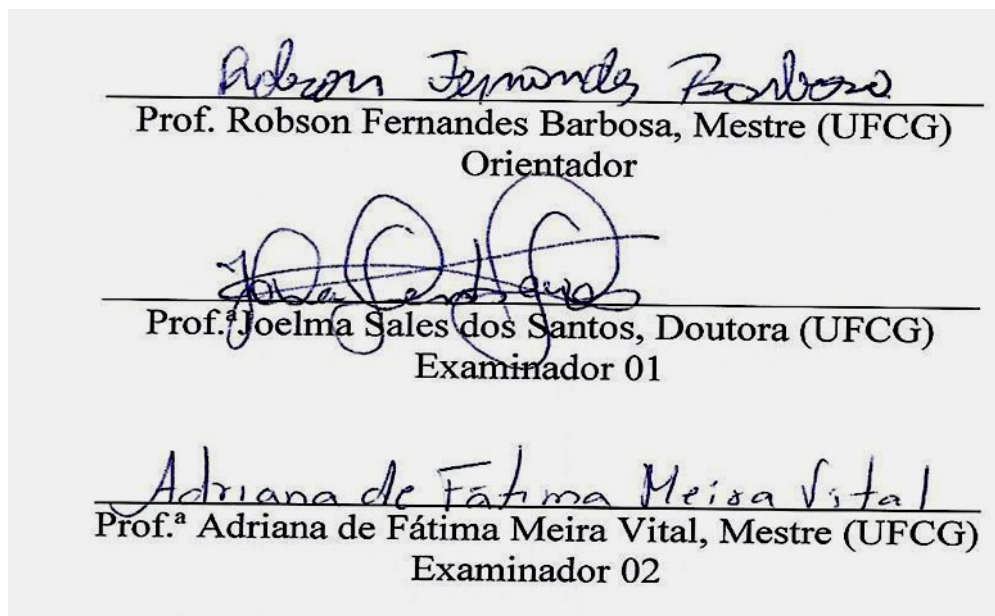 Robson Fernandes Barbosa
Prof. Robson Fernandes Barbosa, Mestre (UFCG)
Orientador
Prof.ªJoelma Sales dos Santos, Doutora (UFCG)
Examinador 01
Adriana de Fátima Meira Vital
Prof.ª Adriana de Fátima Meira Vital, Mestre (UFCG)
Examinador 02